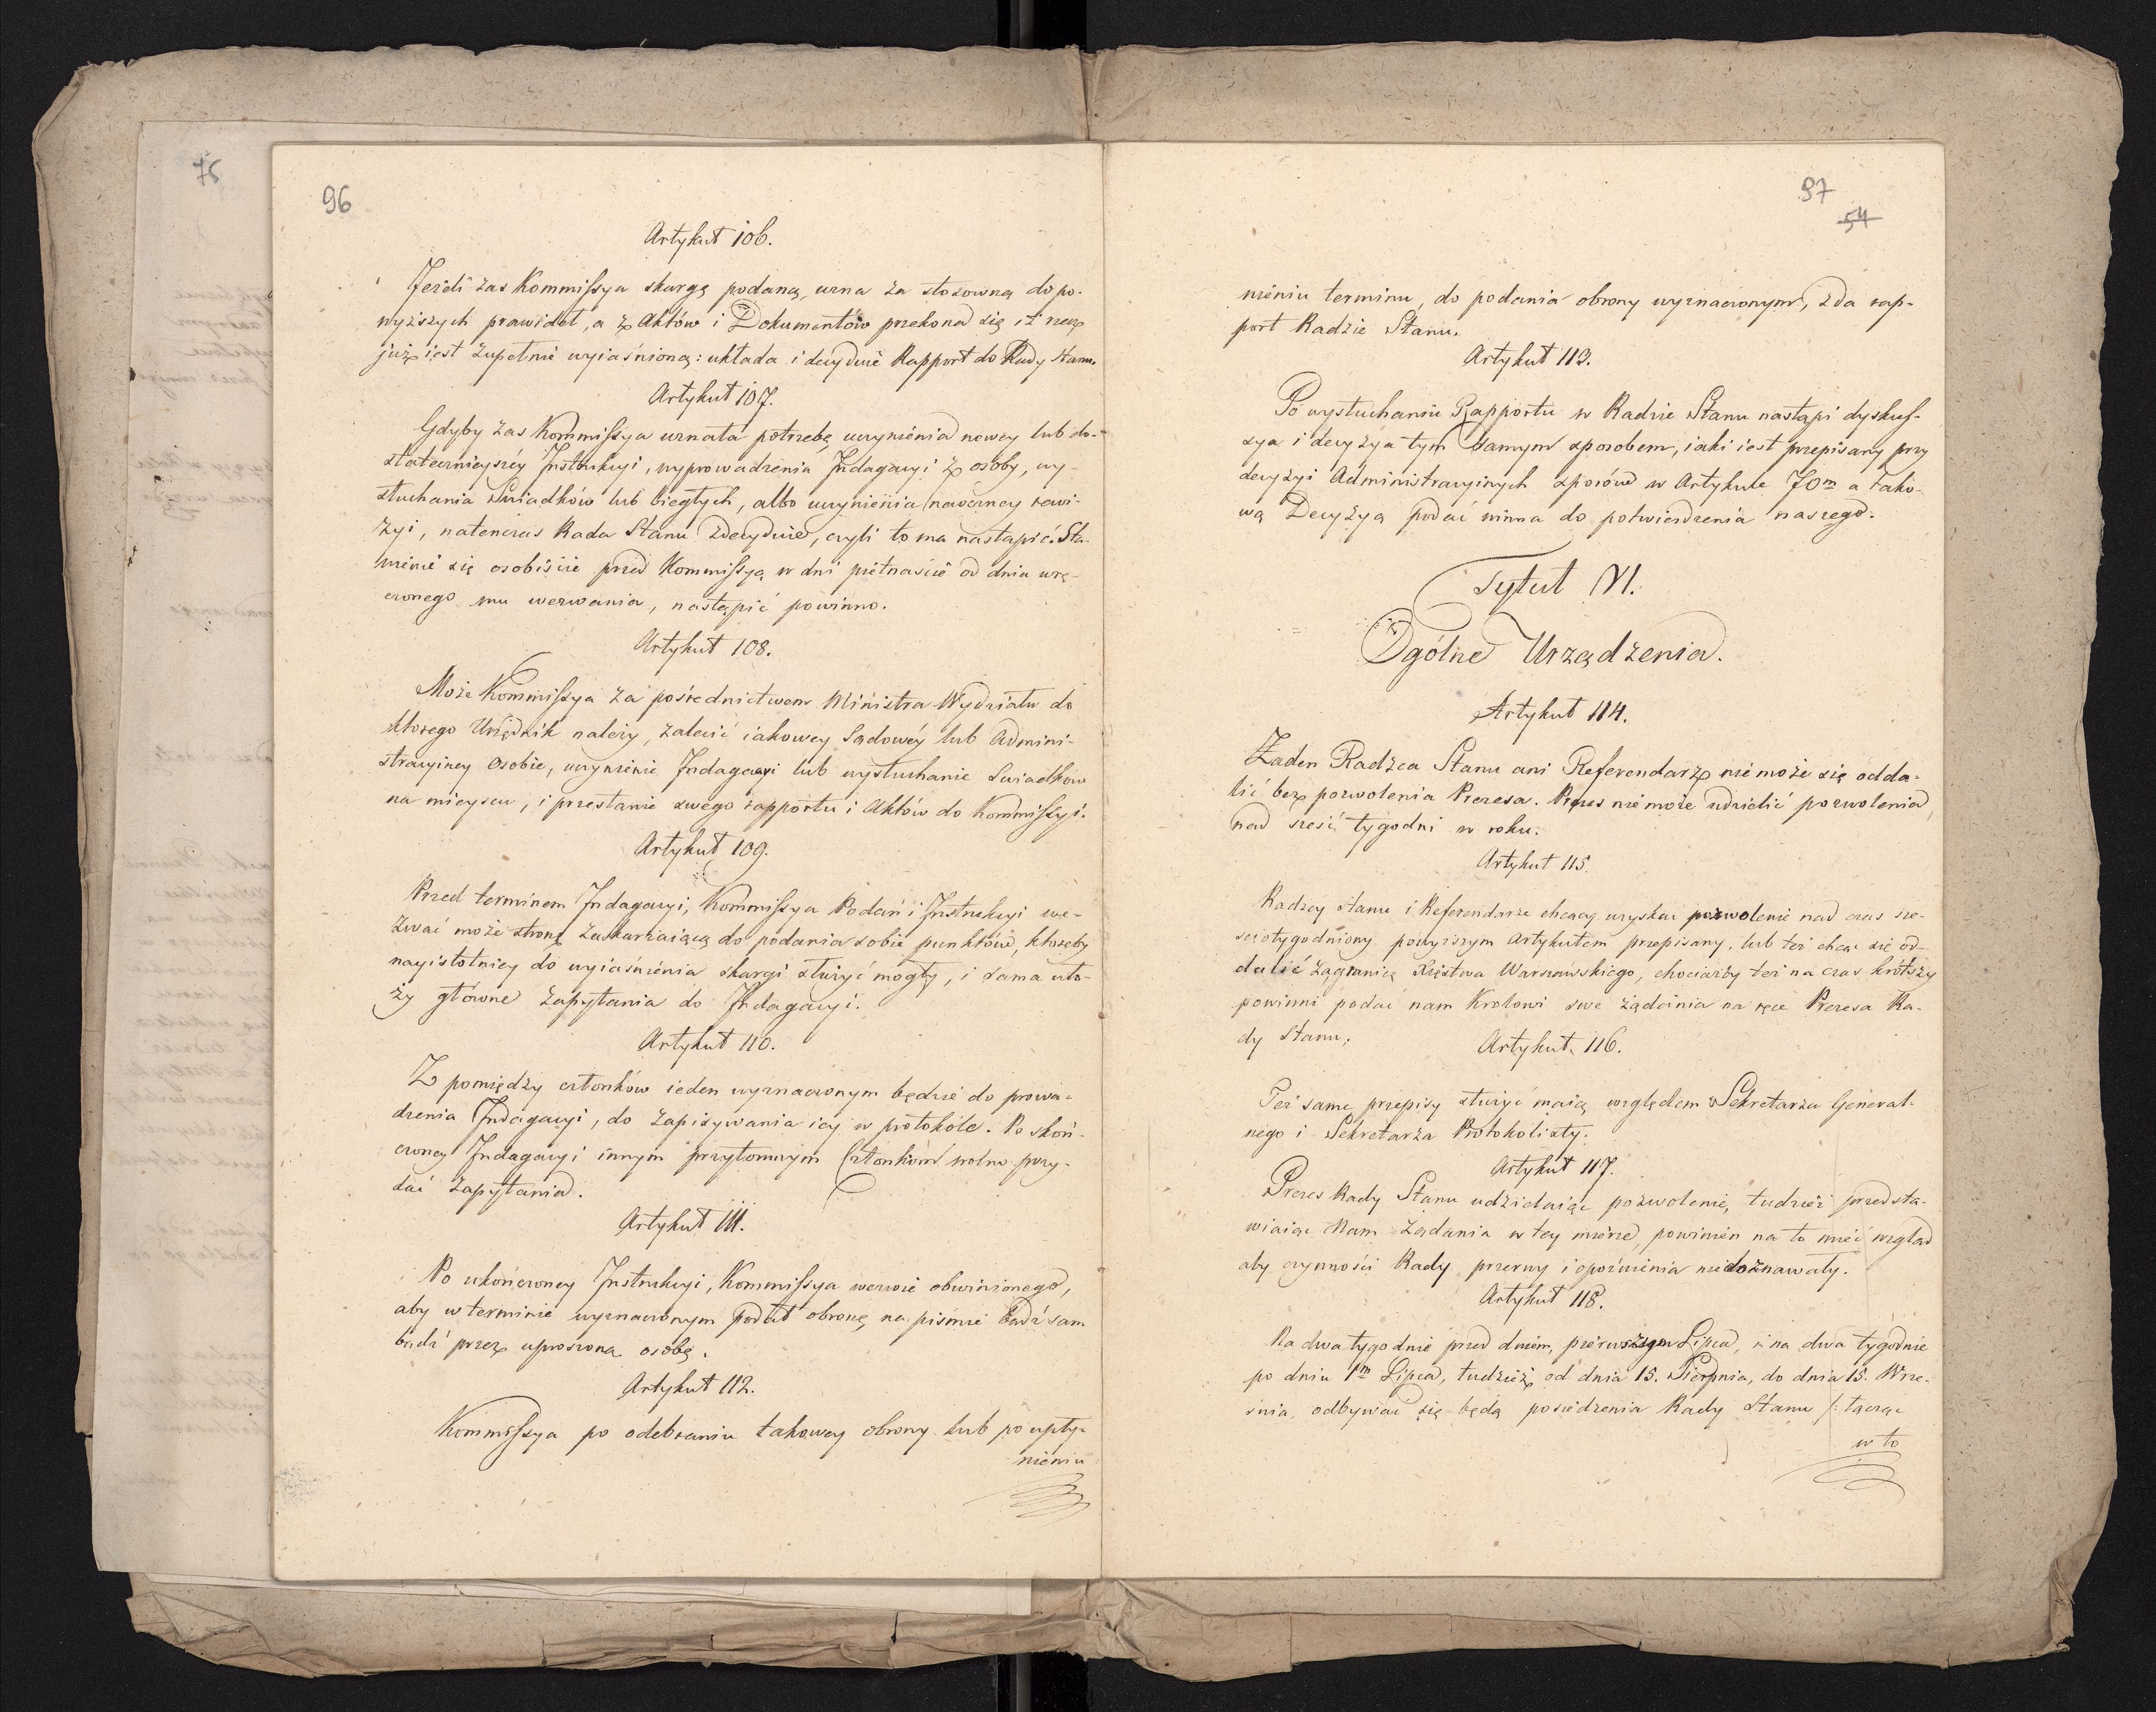 76
96
Artykuł 106.
Jeżeli zas Kommissya skargę podaną, uzna za stosowną do po-
wyższych prawideł, a z Aktów i Dokumentów przekona się iż rzecz
już iest zupełnie wyiaśnioną: układa i decyduie Rapport do Rady Stanu.
Artykuł 107.
Gdyby zas Kommissya uznała potrzebę uczynienia nowey lub do-
statecznieyszéy Instrukcyi, wyprowadzenia Indagacyi z osoby, wy-
słuchania Swiadków lub biegłych, albo uczynienia naoczney rewi-
zyi, natenczas Rada Stanu zdecyduie, czyli to ma nastąpić. Sta-
wienie się osobiście przed Kommissyą w dni piętnaście od dnia wrę-
czonego mu wezwania, nastąpić powinno.
Artykuł 108.
Może Kommissya za pośrednictwem Ministra Wydziału do
którego Urzędnik należy, zalecić iakowey Sądowéy lub Admini-
stracyiney Osobie, uczynienie Indagacyi lub wysłuchanie Swiadków
na mieyscu, i przesłanie swego rapportu i Aktów do Kommissyi.
Artykuł 109.
Przed terminem Indagacyi, Kommissya Podań i Instrukcyi we-
zwać może stronę zaskarżaiącą do podania sobie punktów, któreby
nayistotniey do wyiaśnienia skargi służyć mogły, i sama uło-
ży główne zapytania do Indagacyi.
Artykuł 110.
Z pomiędzy członków ieden wyznaczonym będzie do prowa-
dzenia Indagacyi, do zapisywania iey w protokóle. Po skoń-
czoney Indagacyi innym przytomnym Członkóm wolno przy-
dać zapytania.
Artykuł 111.
Po ukończoney Instrukcyi, Kommissya wezwie obwinionego,
aby w terminie wyznaczonym podał obronę na piśmie bądź sam
bądź przez uproszoną osobę.
Artykuł 112.
Kommissya po odebraniu takowey obrony lub po upły-
nieniu
97
54
nieniu terminu, do podania obrony wyznaczonym, zda rap-
port Radzie Stanu.
Artykuł 113.
Po wysłuchaniu Rapportu w Radzie Stanu nastąpi dyskus-
sya i decyzya tym samym sposobem, iaki iest przepisany przy
decyzyi Administracyinych sporów w Artykule 70m a tako-
wą Decyzyą podać winna do potwierdzenia naszego.
Tytuł VI.
Ogólne Urządzenia.
Artykuł 114.
Żaden Radzca Stanu ani Referendarz nie może się odda-
lić bez pozwolenia Prezesa. Prezes nie może udzielić pozwolenia
nad sześć tygodni w roku.
Artykuł 115.
Radzcy Stanu i Referendarze chcący uzyskać pozwolenie nad czas sze-
ściotygodniowy powyższym Artykułem przepisany, lub też chcąc się od-
dalić zagranicę Xięstwa Warszawskiego, chociażby też na czas krótszy
powinni podać nam Królowi swe żądania na ręce Prezesa Ra-
dy Stanu.
Artykuł 116.
Też same przepisy służyć maią względem Sekretarza General-
nego i Sekretarza Protokolisty.
Artykuł 117.
Prezes Rady Stanu udzielaiąc pozwolenie, tudzież przedsta-
wiaiąc Nam żądania w tey mierze, powinien na to mieć wzgląd
aby czynności Rady przerwy i opóźnienia niedoznawały.
Artykuł 118.
Na dwa tygodnie przed dniem, pierwszym Lipca, i na dwa tygodnie
po dniu 1m Lipca, tudzież od dnia 15. Sierpnia, do dnia 15. Wrze-
śnia, odbywać się będą posiedzenia Rady Stanu /: łącząc
w to